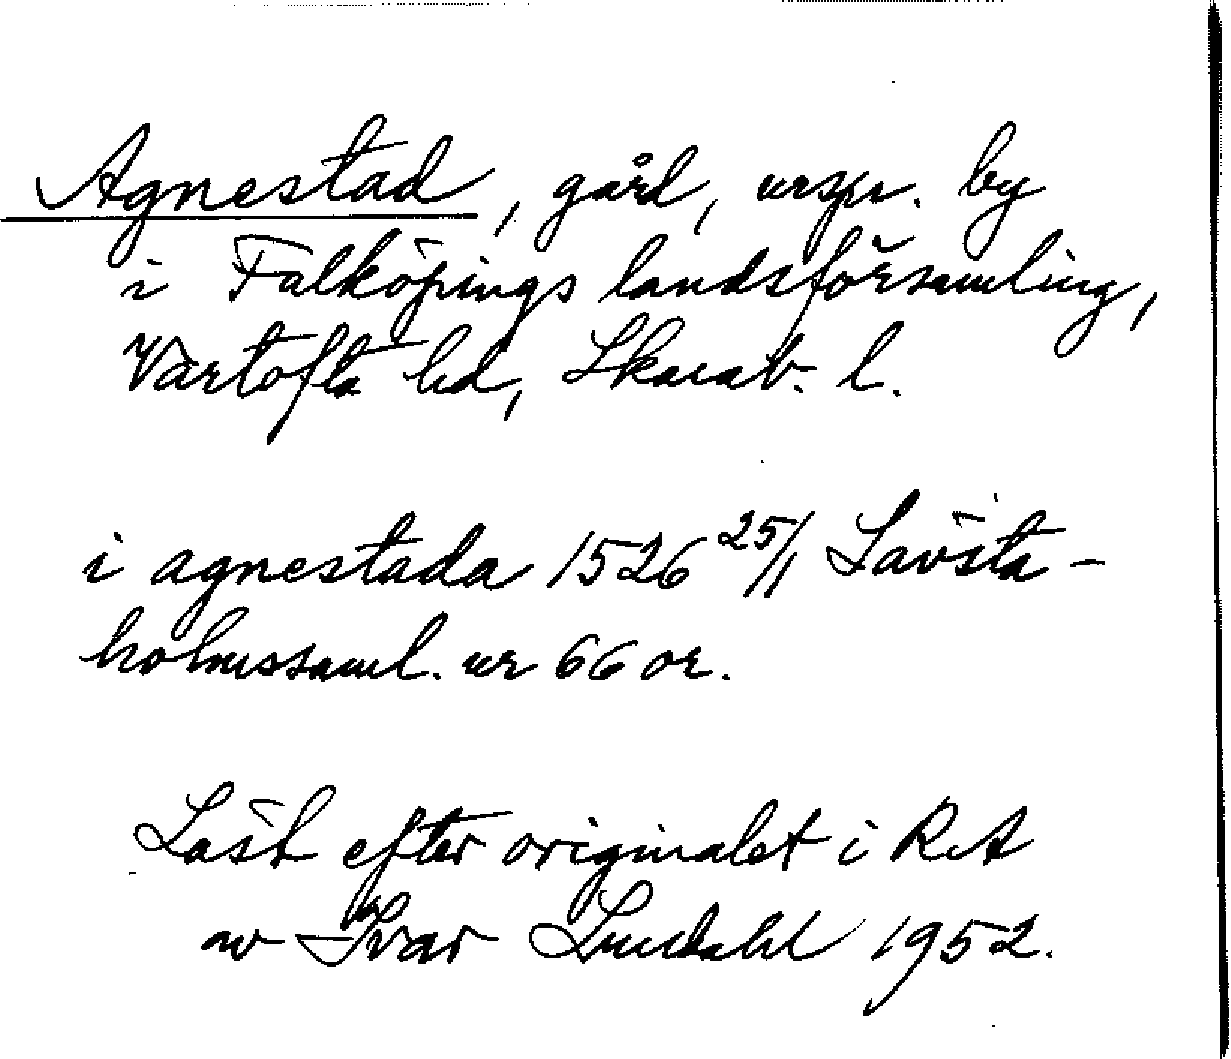 Agnestad, gård, urspr. by
i Falköpings landsförsamling,
Vartofta hd, Skarab. l.
i agnestada 1526 25/1 Lövsta-
holmssaml. nr 66 or.
Läst efter originalet i RA
av Ivar Lundahl 1952.